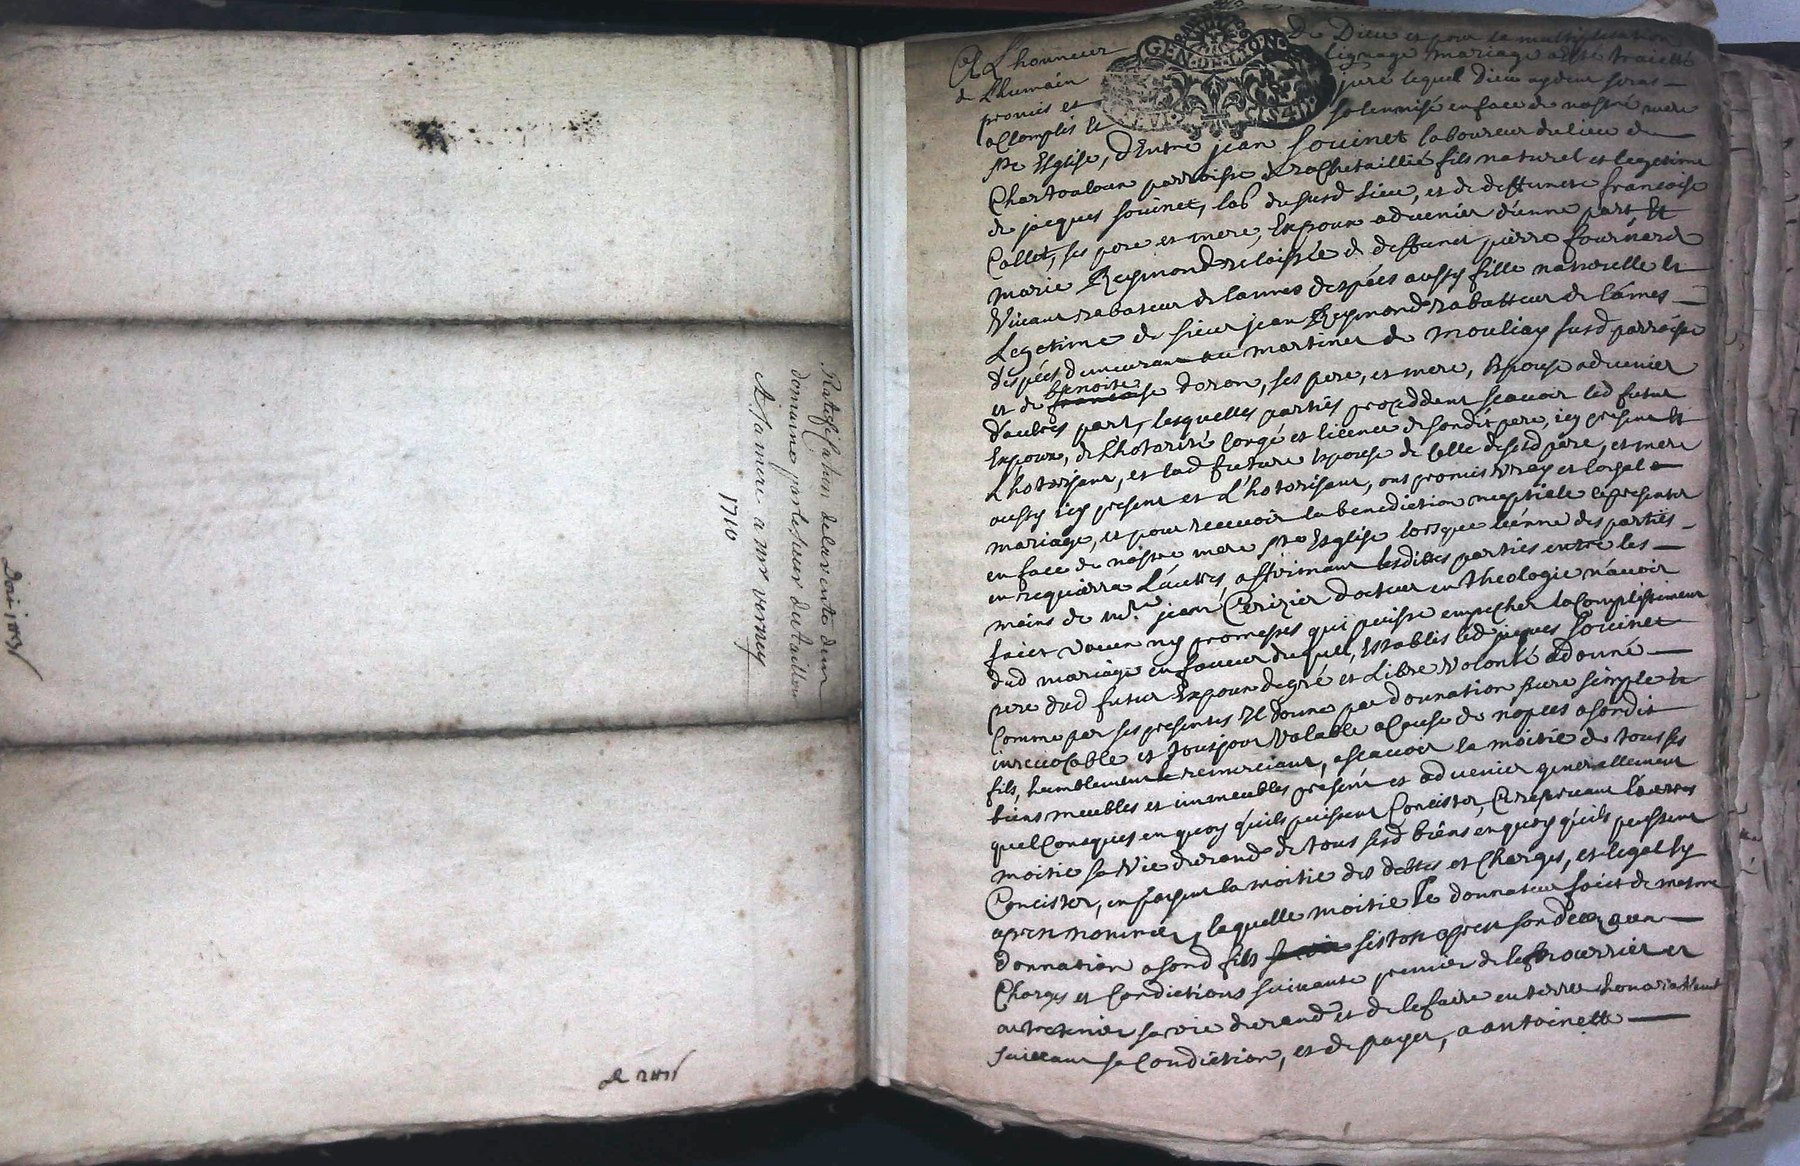 Ratiffication de la vente d'un
domaine par le sieur du taillou
A Sa mere a mr verney
1710
A L'honneur De Dieu et pour la multiplication
de L'humain lignage mariage a este traicté
promis et juré lequel Dieu aydant seras
accomplis Et solemnisé en face de nostre mere
GEN DE LION
Ste Esglise, D'Entre jean Souinet laboureur du lieu de
parroisse de rochetaillié fils naturel et legetime
de jacques souinet, labr du susd lieu, et de deffuncte francoise
Collet, ses pere et mere, Expoux advenier d'eunne part, Et
marie Reymond relaissée de deffunct pierre fournerd
Vivant rabateur de lames despées aussy fille naturelle Et
Legetime de sieur jean Reymond rabatteur de lâmes
despées demeurant au martinet de mouliay susd parroisse
et de francoise benoite doron, ses pere, et mere, Espouse advenier
d'autres part, lesquelles parties proceddent scavoir led futur
Expoux, de L'hotorité Congé et licence de sondit pere, icy present Et
L'hotorisant, et lad future Espouse de celle desesd père, et mere
aussy icy present et L'hotorisant, ont promis vray et loyal
mariage, et pour recevoir la benediction nuptiale se presenter
en face de nostre mere Ste Esglise lorsque l'eunne des parties
en requierra L'autres, affirmant lesdittes parties entre les
mains de mre jean Cerizier docteur en theologie n'avoir
faict vœu ny promesses qui puisse empecher l'acomplissiment
dud mariage en faveur duquel, Establis led jacques Souinet
pere dud futur Expoux degré et Libre volonté a donné
Comme par ses presentes Il donne par donnation pure simple et
irrevocable et tousjour valable a cause de nopces a sondit
fils, humblement le remerciant, ascavoir la moitié de tous ses
biens meubles et immeubles présent et advenier generallement
quelConques en quoy quils puissent Concister, Ce reservant l'autres
moitié sa vie durand de tous sesd biens en quoy quils puissent
Concister, en payant la moitié des debtes et Charges, et legat cy
apres nommés, laquelle moitié le donnateur faict de mesme
donnation a sond fils apres son decez aux
Charges et Condictions suivante premier de le nourrier et
entretenier sa vie durand et de le faire enterrer honorablement
suivant sa Condiction, et de payer, a antoinette